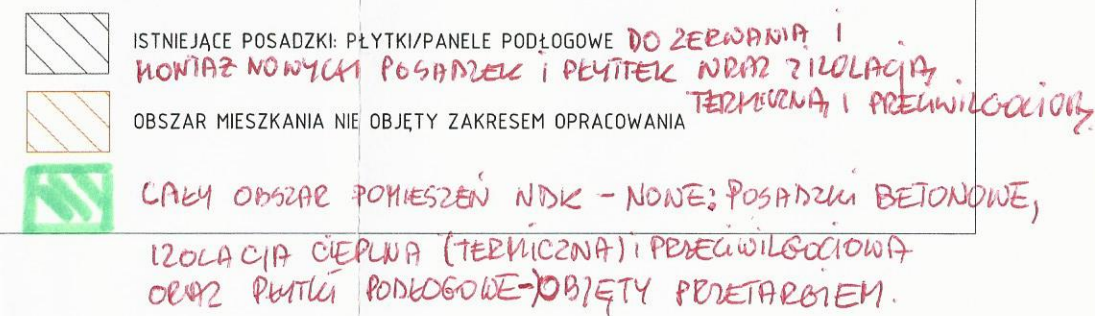 ISTNIEJĄCE POSADZKI: PŁYTKI/PANELE PODŁOGOWE DO ZERWANIA I
MONTAŻ NOWYCH POSADZEK I PŁYTEK WRAZ Z IZOLACJĄ
TERMICZNĄ I PRZECIWILGOCIOWĄ
OBSZAR MIESZKANIA NIE OBJĘTY ZAKRESEM OPRACOWANIA
CAŁY OBSZAR POMIESZEŃ NDK - NOWE: POSADZKI BETONOWE,
IZOLACJA CIEPLNA (TERMICZNA) I PRZECIWILGOCIOWA
ORAZ PŁYTKI PODŁOGOWE - OBJĘTY PRZETARGIEM.